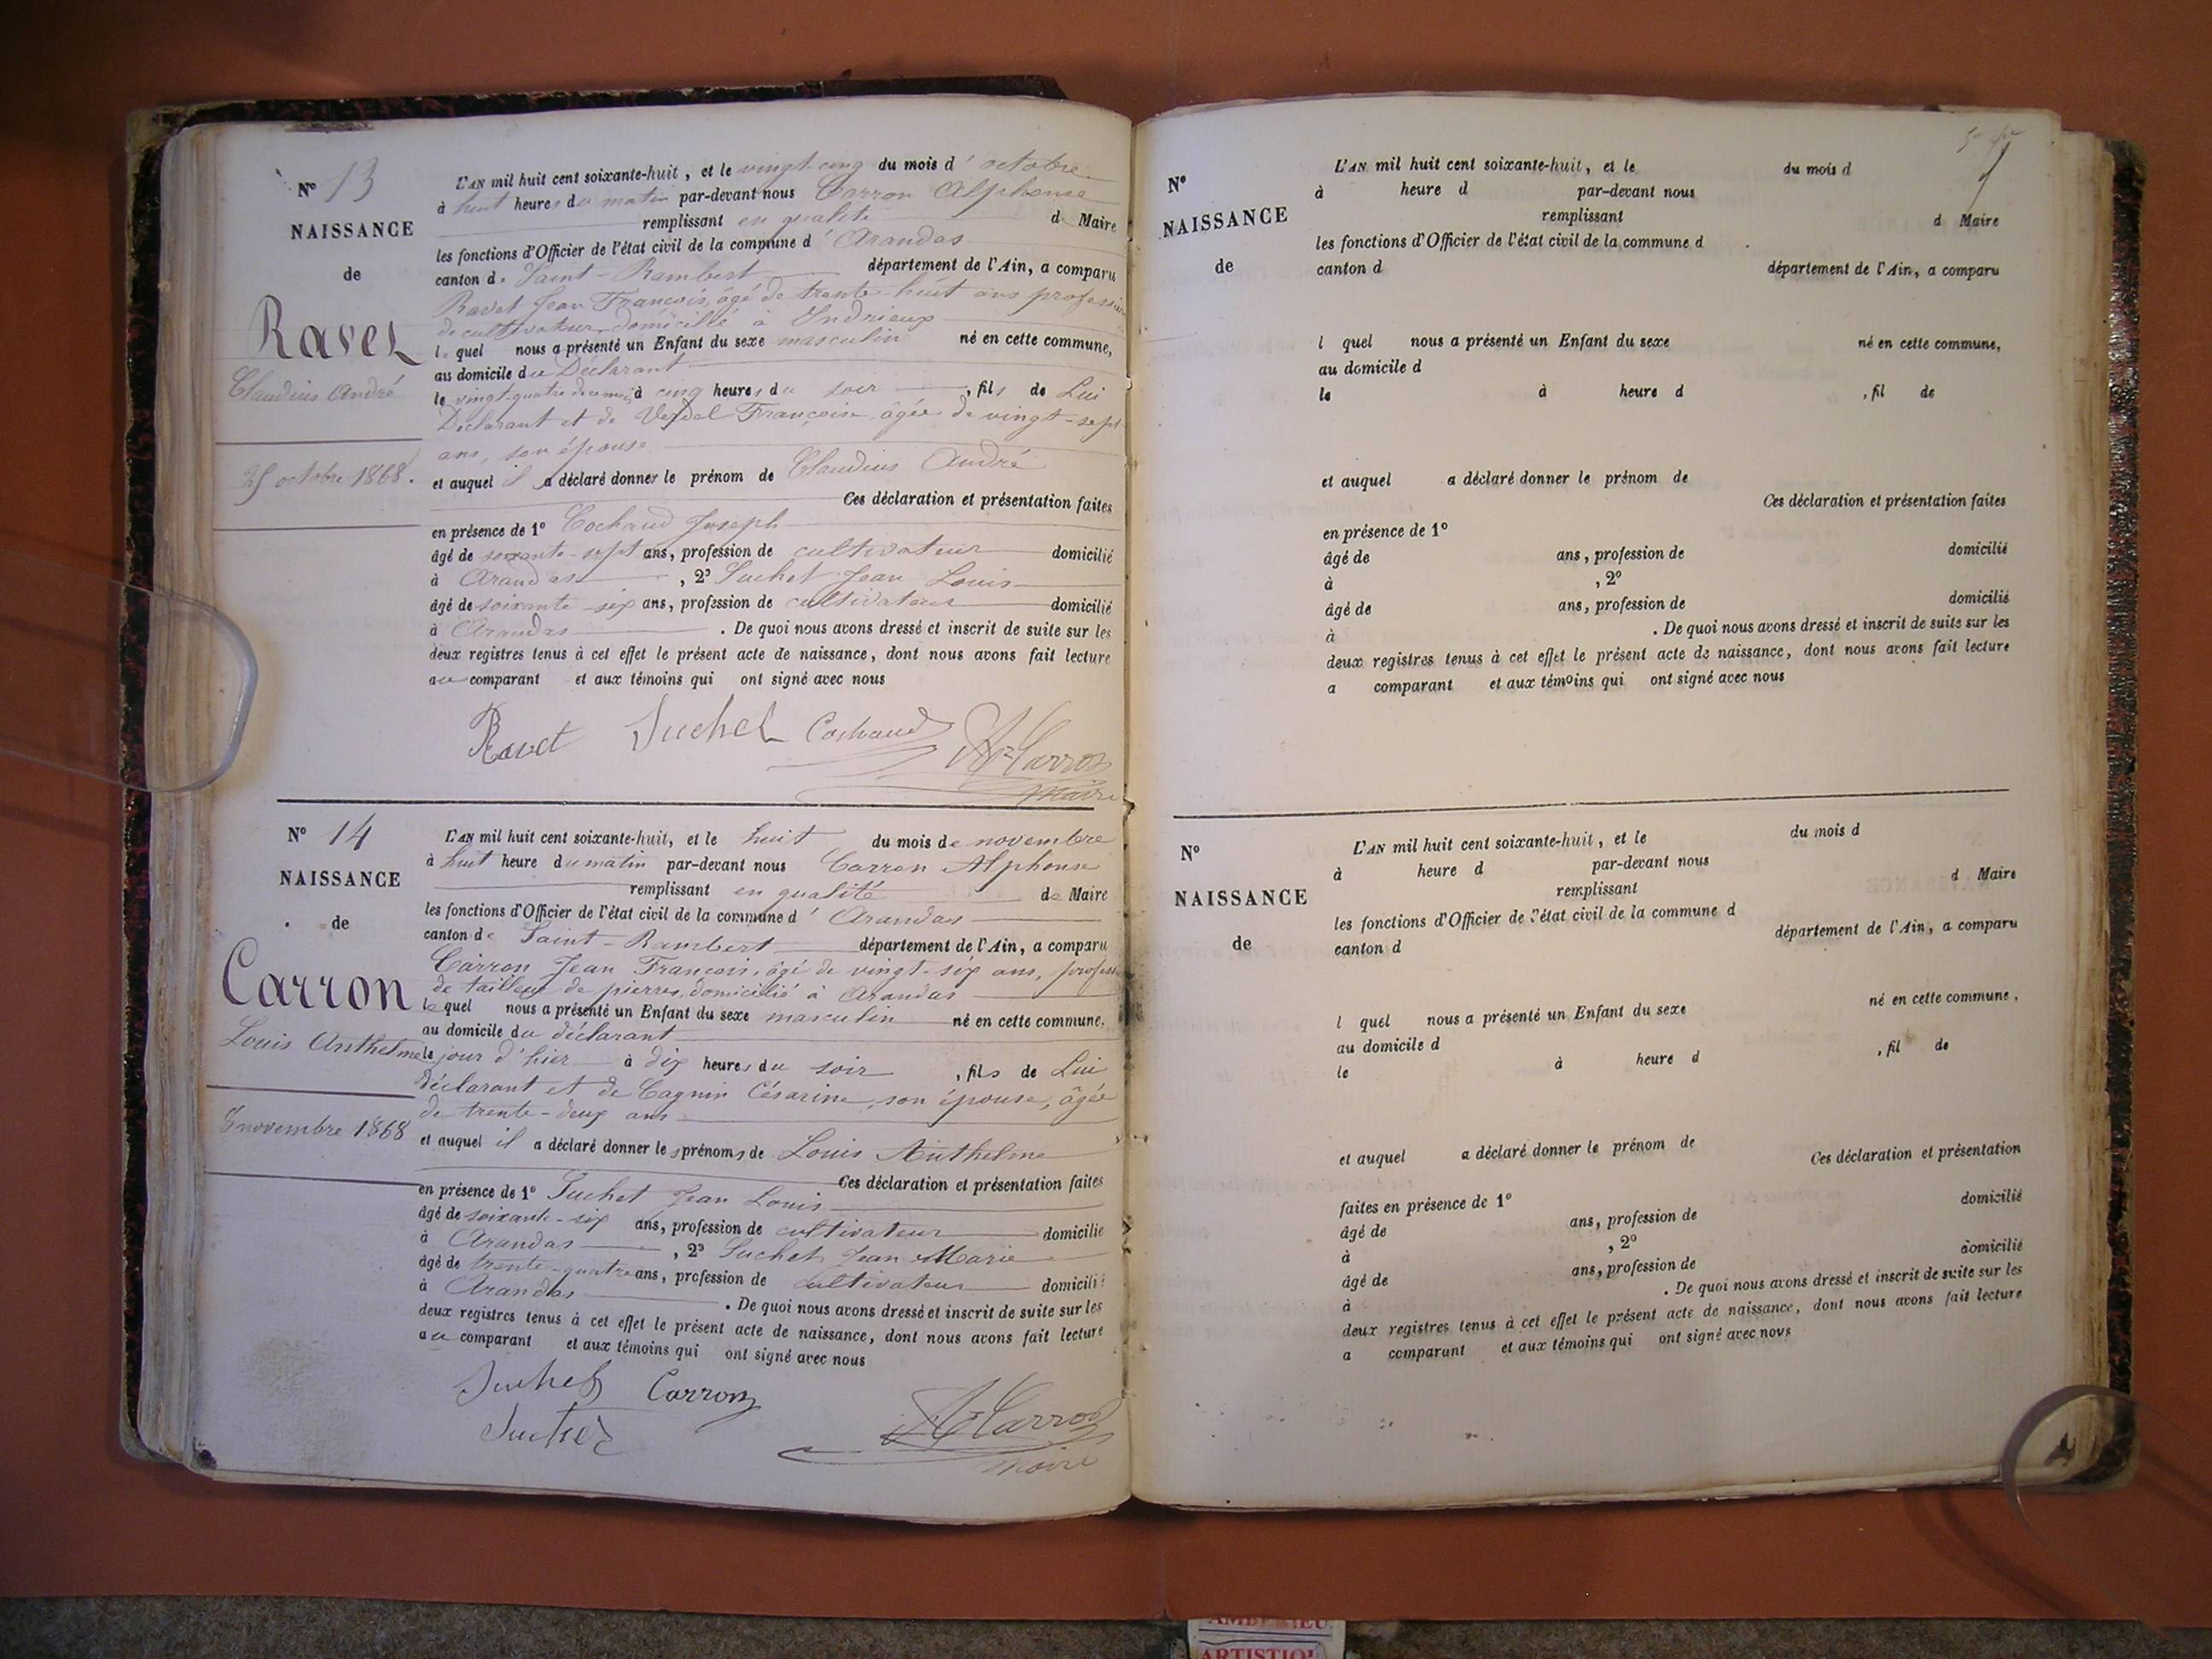 N° 13
NAISSANCE
de
Ravet
Claudius André
25 octobre 1868.
L'AN mil huit cent soixante-huit, et le vingt-cinq du mois d'octobre
à huit heures du matin par-devant nous Carron Alphonse
remplissant en qualité de Maire
les fonctions d'Officier de l'état civil de la commune d'Arandas
canton de Saint-Rambert département de l'Ain, a comparu
Ravet Jean François, âgé de trente-huit ans profession
de cultivateur, domicilié à Indrieux
lequel nous a présenté un Enfant du sexe masculin né en cette commune,
au domicile du Déclarant
le vingt-quatre du mois à cinq heures du soir, fils de Lui
Déclarant et de Françoise, âgée de vingt-sept
ans, son épouse
et auquel il a déclaré donner le prénom de Claudius André
Ces déclaration et présentation faites
en présence de 1° Cochaud Joseph
âgé de soixante-sept ans, profession de cultivateur domicilié
à Arandas, 2° Suchet Jean Louis
âgé de soixante-six ans, profession de cultivateur domicilié
à Arandas. De quoi nous avons dressé et inscrit de suite sur les
deux registres tenus à cet effet le présent acte de naissance, dont nous avons fait lecture
au comparant et aux témoins qui ont signé avec nous
Ravet Suchet Cochaud A Carron
Maire
N° 14
NAISSANCE
de
Carron
Louis Anthelme
7 novembre 1868
L'AN mil huit cent soixante-huit, et le huit du mois de novembre
à huit heure du matin par-devant nous Carron Alphonse
remplissant en qualité de Maire
les fonctions d'Officier de l'état civil de la commune d'Arandas
canton de Saint-Rambert département de l'Ain, a comparu
Carron Jean François, âgé de vingt-six ans, profession
de tailleur de pierres, domicilié à Arandas
lequel nous a présenté un Enfant du sexe masculin né en cette commune,
au domicile du déclarant
le jour d'hier à dix heures du soir, fils de Lui
déclarant et de Cagnin Césarine, son épouse, âgée
de trente-deux ans
et auquel il a déclaré donner les prénoms de Louis Anthelme
Ces déclaration et présentation faites
en présence de 1° Suchet Jean Louis
âgé de soixante-six ans, profession de cultivateur domicilié
à Arandas, 2° Suchet Jean Marie
âgé de trente-quatre ans, profession de cultivateur domicilié
à Arandas. De quoi nous avons dressé et inscrit de suite sur les
deux registres tenus à cet effet le présent acte de naissance, dont nous avons fait lecture
au comparant et aux témoins qui ont signé avec nous
Suchet Carron
Suchet A Carron
Maire
N°
NAISSANCE
de
L'AN mil huit cent soixante-huit, et le du mois d
à heure d par-devant nous
remplissant d Maire
les fonctions d'Officier de l'état civil de la commune d
canton d département de l'Ain, a comparu
l quel nous a présenté un Enfant du sexe né en cette commune,
au domicile d
le à heure d , fil de
et auquel a déclaré donner le prénom de
Ces déclaration et présentation faites
en présence de 1°
âgé de ans, profession de domicilié
à , 2°
âgé de ans, profession de domicilié
à . De quoi nous avons dressé et inscrit de suite sur les
deux registres tenus à cet effet le présent acte de naissance, dont nous avons fait lecture
a comparant et aux témoins qui ont signé avec nous
N°
NAISSANCE
de
L'AN mil huit cent soixante-huit, et le du mois d
à heure d par-devant nous
remplissant d Maire
les fonctions d'Officier de l'état civil de la commune d
canton d département de l'Ain, a comparu
l quel nous a présenté un Enfant du sexe né en cette commune,
au domicile d
le à heure d , fil de
et auquel a déclaré donner le prénom de
Ces déclaration et présentation
faites en présence de 1°
âgé de ans, profession de domicilié
à , 2°
âgé de ans, profession de domicilié
à . De quoi nous avons dressé et inscrit de suite sur les
deux registres tenus à cet effet le présent acte de naissance, dont nous avons fait lecture
a comparant et aux témoins qui ont signé avec nous